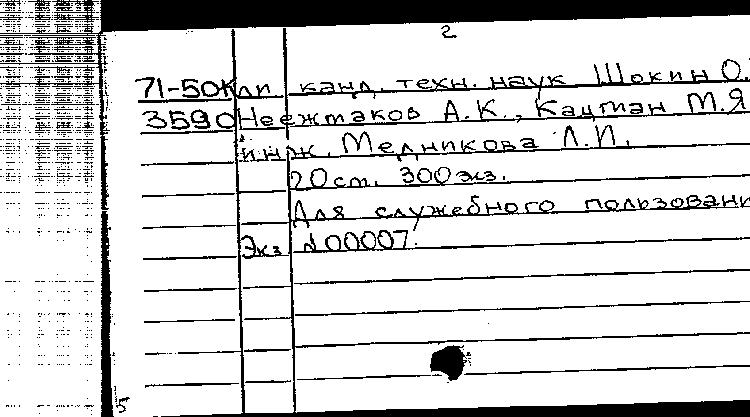 2
71-50К ли канд. техн. наук Шокин О.
3590 Неежмаков А.К., Кацман М.Я
инж. Медникова Л.И.
20 ст. 300 экз.
Для служебного пользовани
Экз №00007.
5